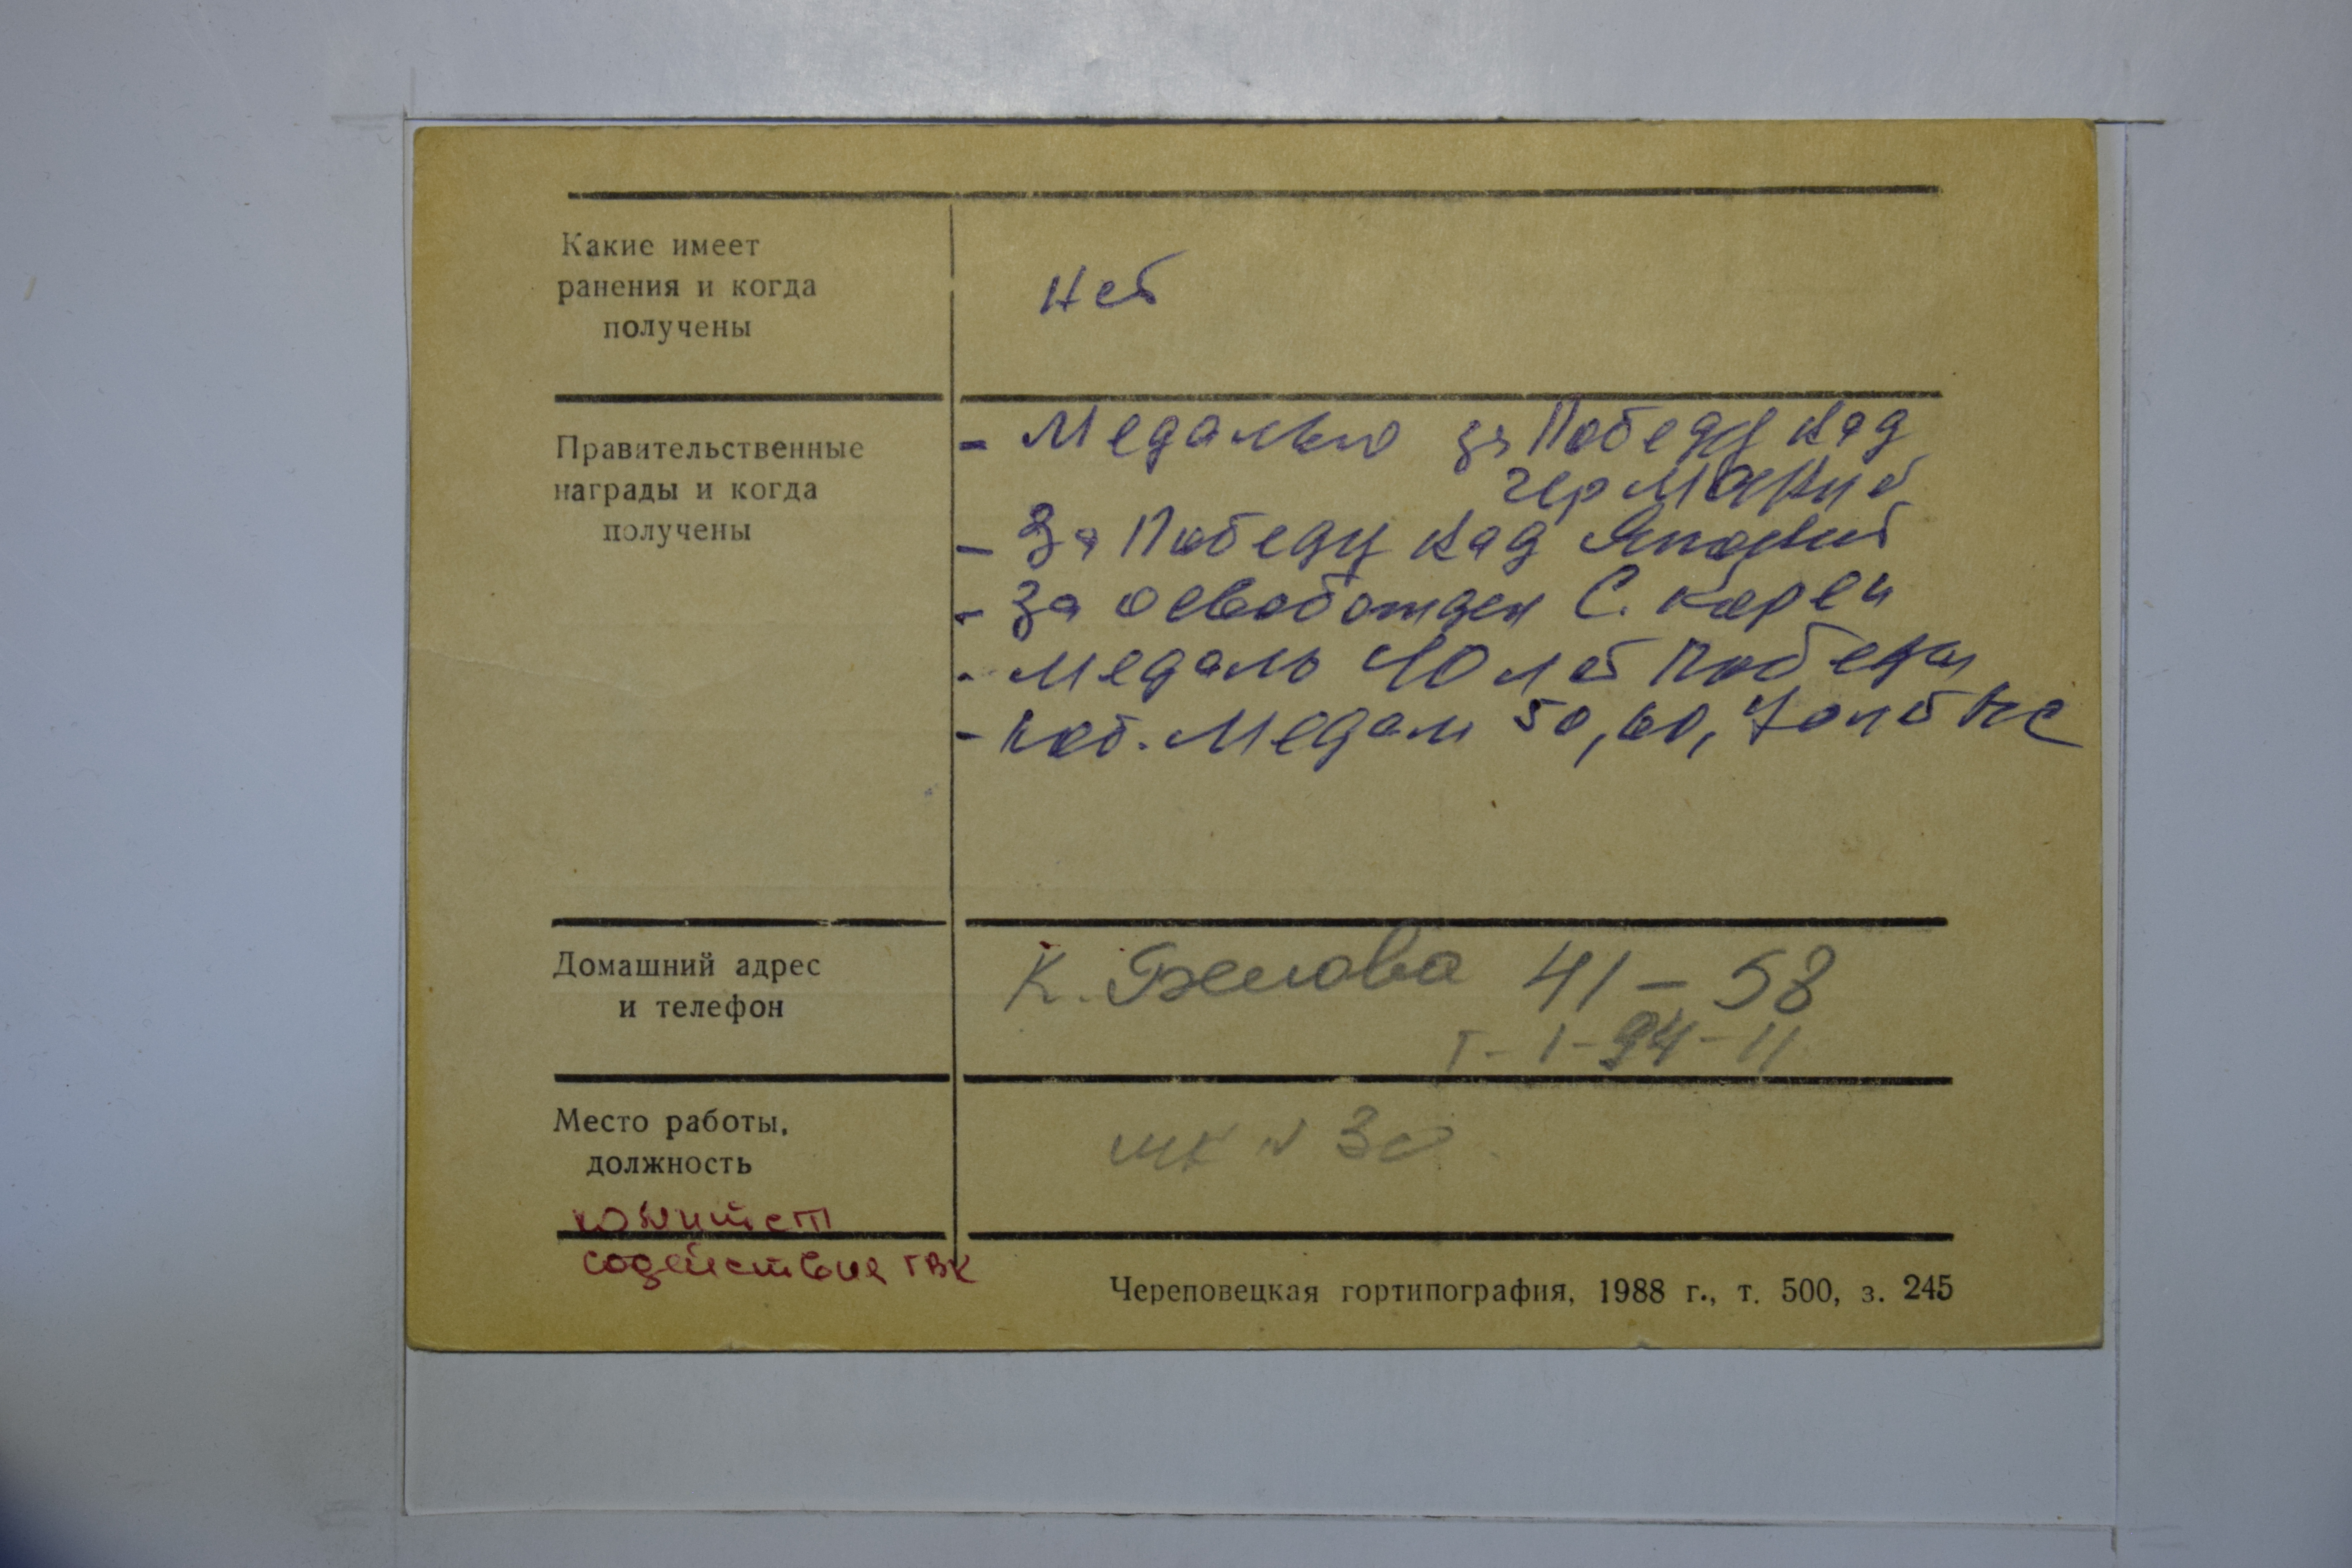 Какие имеет
ранения и когда
получены
Нет
Правительственные
награды и когда
получены
- Медалью за Победу над
германией
- За Победу над Японией
- За освобожден С. Кореи
- Медаль 40 лет Победы
- Юб. Медали 50, 60, 70 лет ВС
Домашний адрес
и телефон
К. Белова 41-58
т-1-94-11
Место работы,
должность
шк № 30
комитет
содействия ГВК
Череповецкая гортипография, 1988 г., т. 500, з. 245